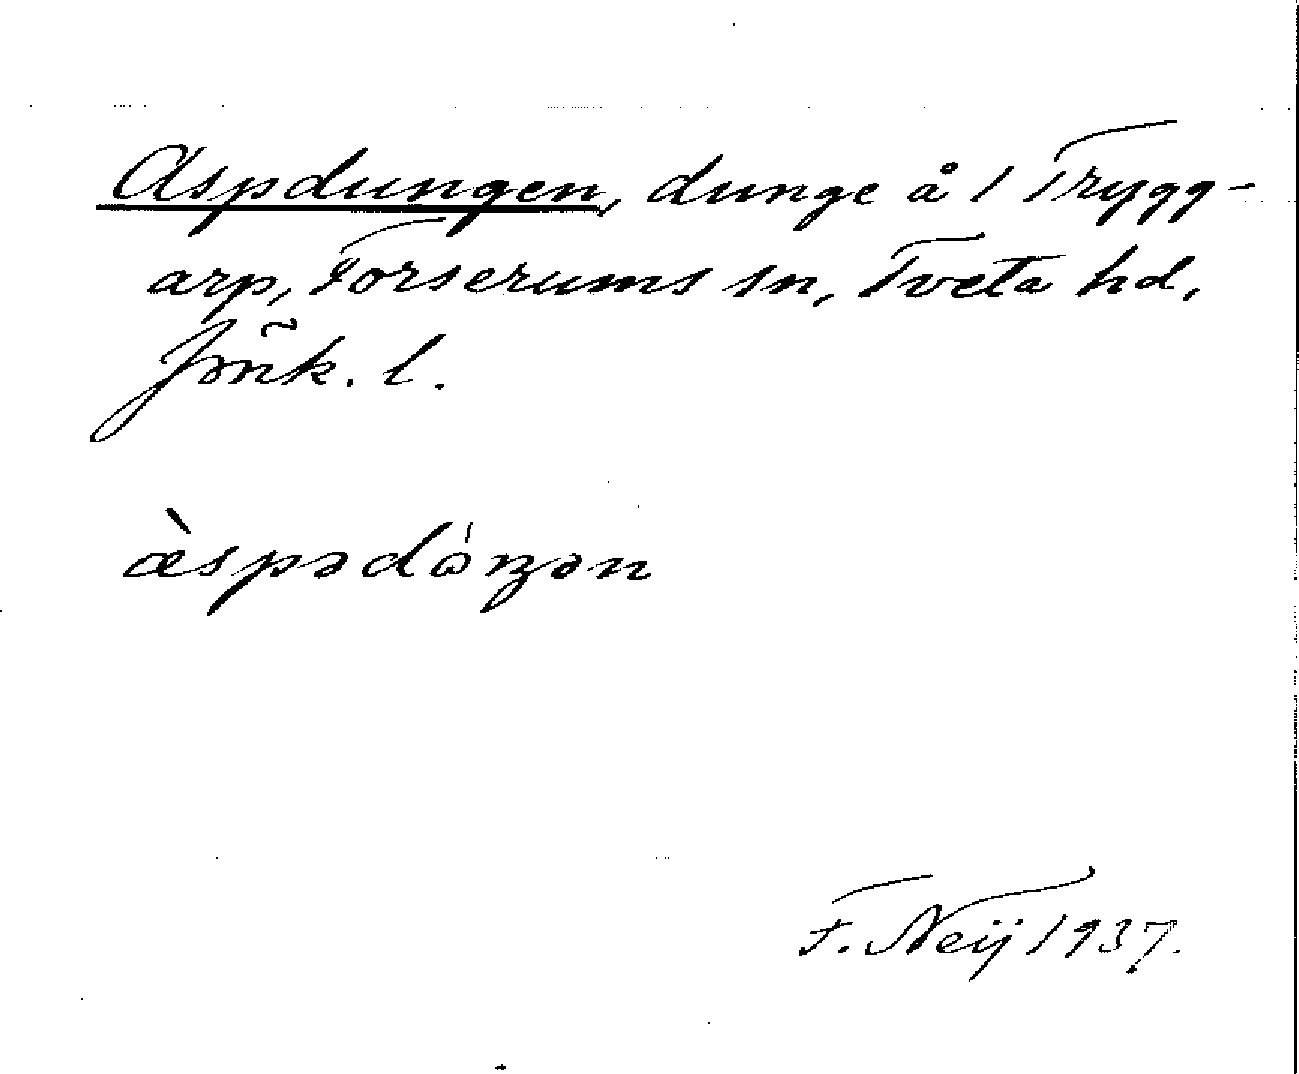 Aspdungen, dunge å 1 Trygg-
arp, Forserums sn, Tveta hd,
Jönk. l.
æ̀spədώŋən
F. Neij 1937.